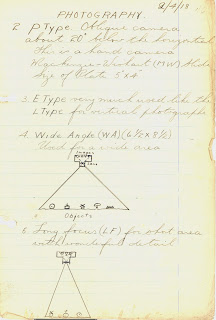 2/4/18
PHOTOGRAPHY.
2. P Type Oblique camera
about 20° below the horizontal
This is a hand camera
Mackenzie-Wishart (MW) Slide
Size of Plate 5"x4"
3. E Type very much used like the
L Type for vertical photographs
4. Wide Angle (WA) (6½ x 8½)
Used for a wide area
Images
Lens
Objects
5. Long focus (LF) for short area
with wonderful detail